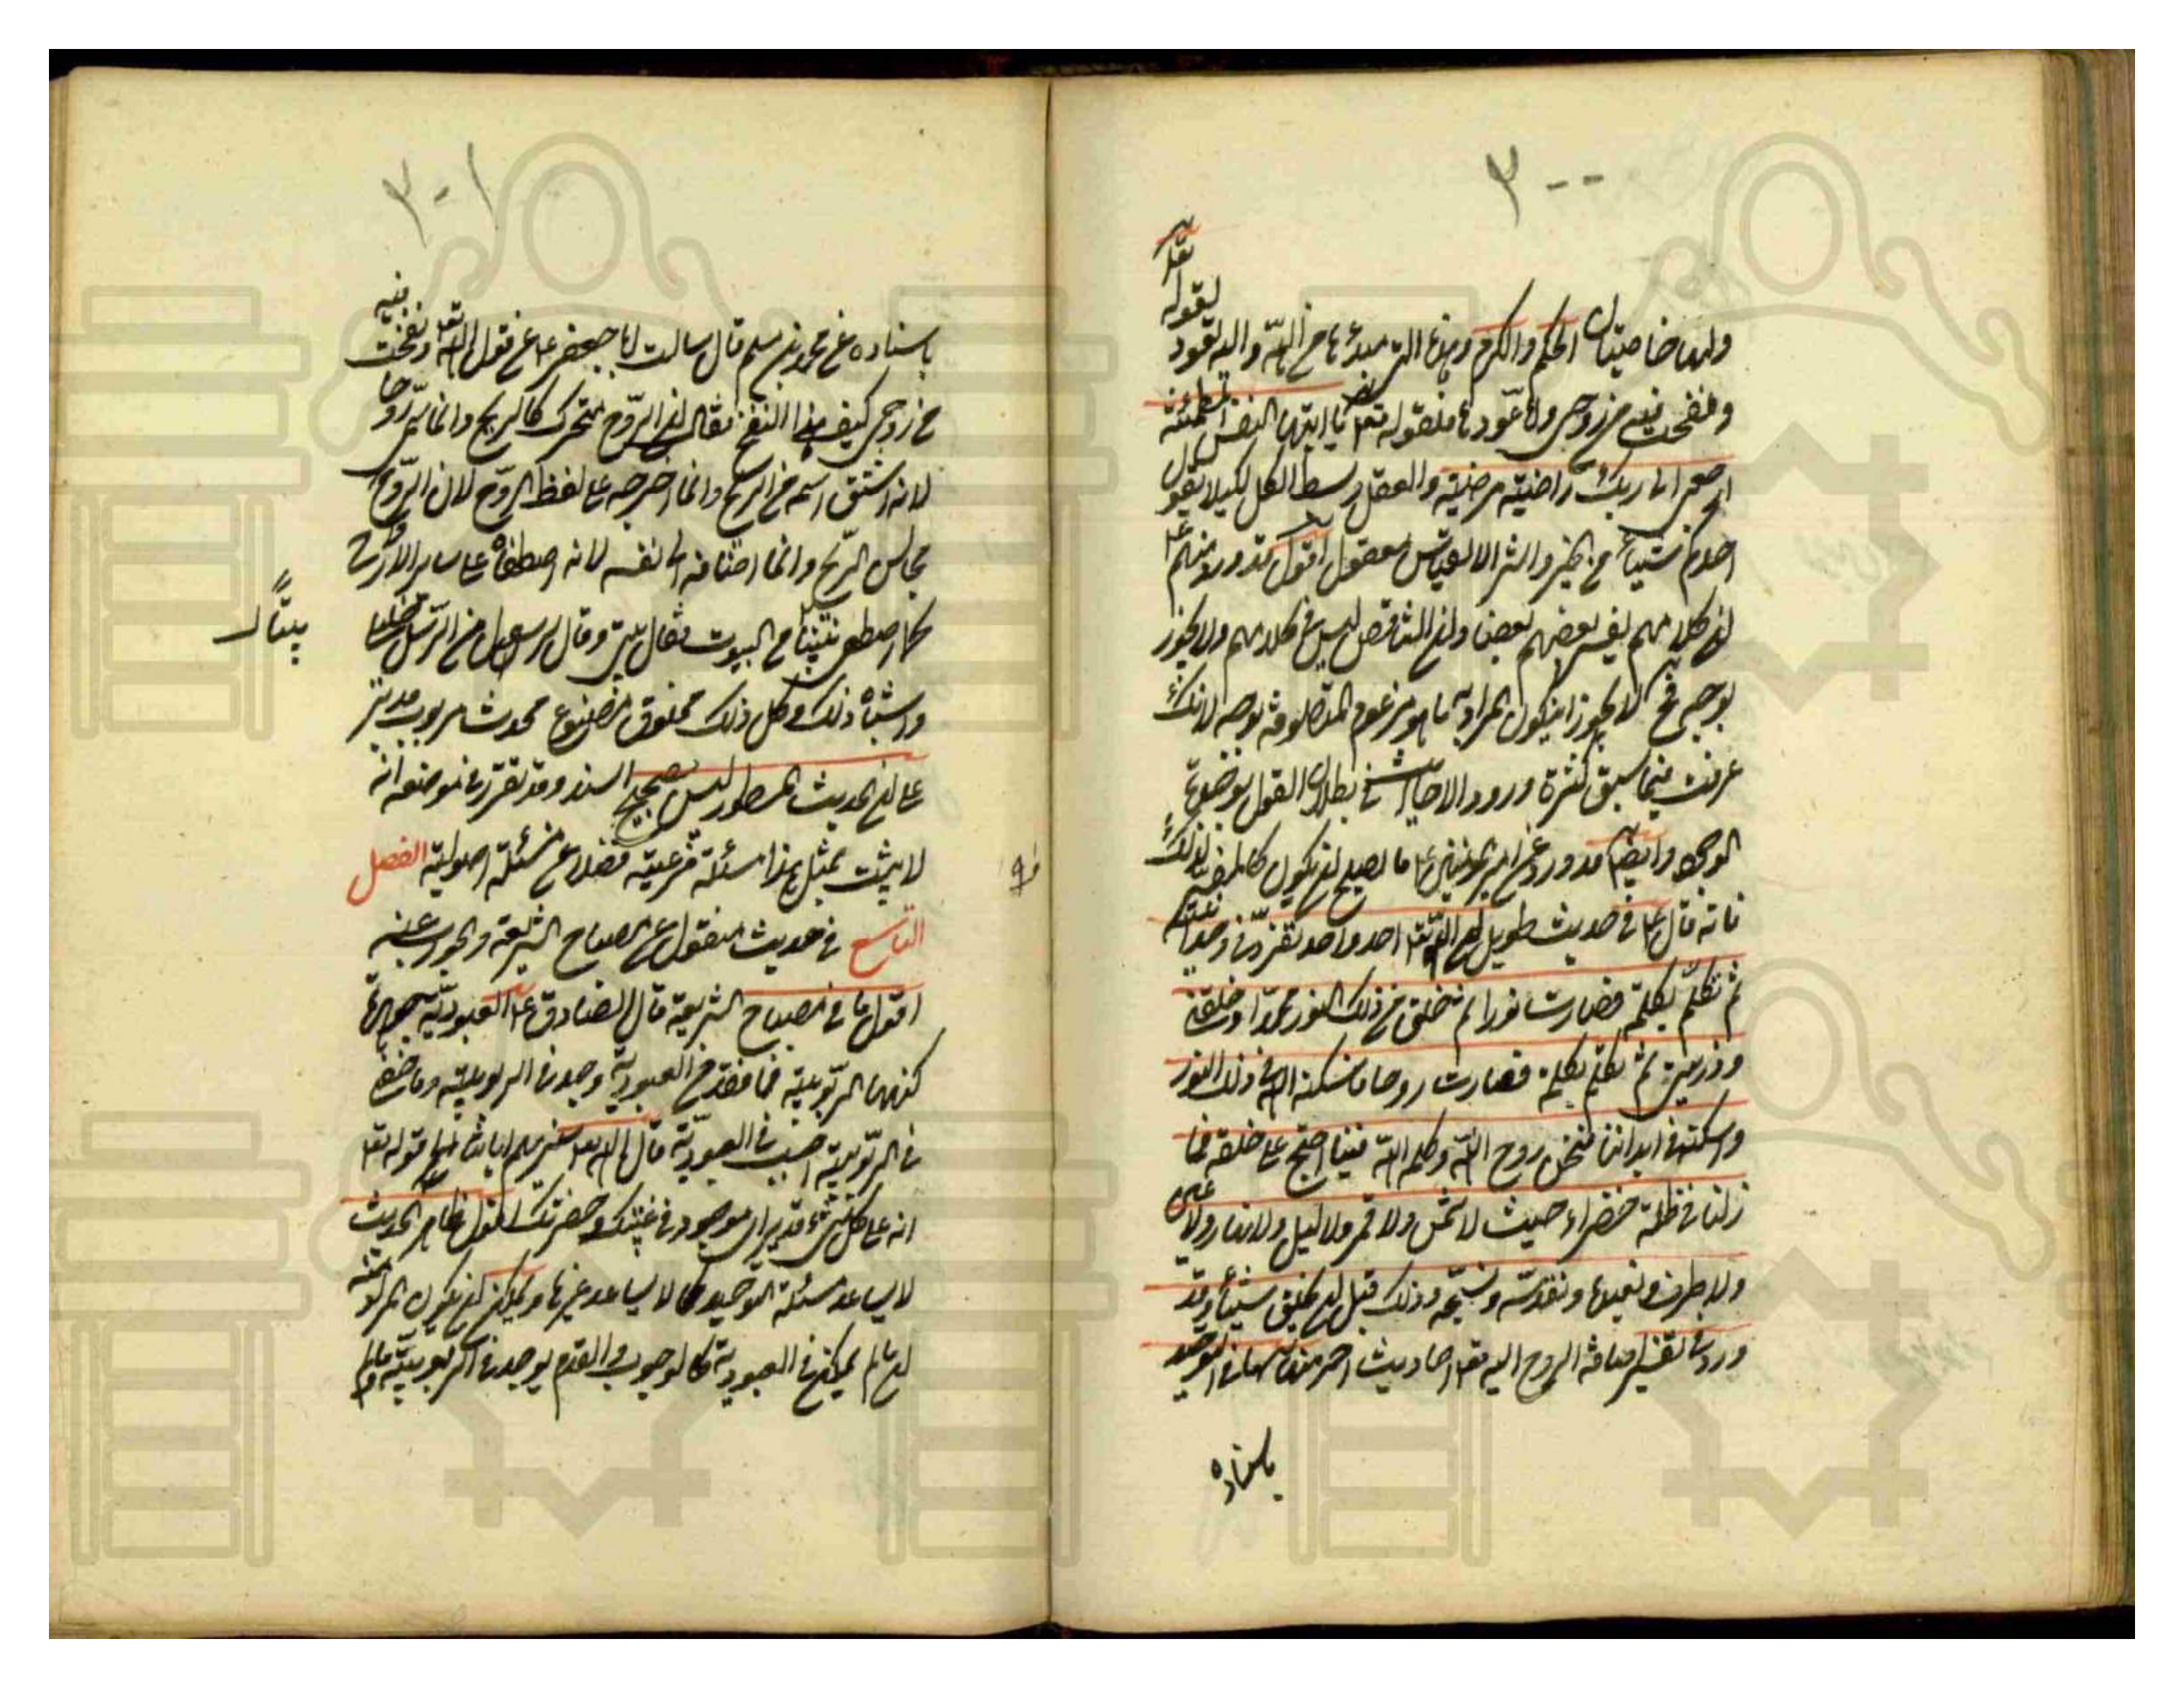 ٣٠٠
ولها خاصيتان الحكم والكرم وهذه التى مبدئها من الله واليه تعود لقوله تعالى
ونفخت فيه من روحى واما عودها فلقوله تعا يا ايتها النفس المطمئنة
ارجعى الى ربك راضية مرضية والعقل وسط الكل لكيلا يقول
احدكم شيئا من الخير والشر الا لقياس معقول اقول قد ورد عنهم ع
ان كلامهم يفسر بعضهم بعضا وان التناقض ليس فى كلامهم ولا يجوز
بوجه فح لا يجوز ان يكون المراد به ما هو مزعوم المتصوفة بوجه لانك
عرفت فيما سبق كثرة ورود الاخبار فى بطلان القول بوحدة
الوجود وايضا قد ورد عن امير المؤمنين ع ما يصلح ان يكون كالمفسر لذلك
فانه قال ع فى حديث طويل ان الله تعا احد واحد تفرد فى وحدانيته
ثم تكلم بكلمة فصارت نورا ثم خلق من ذلك النور محمدا وخلقنى
وذريتى ثم تكلم بكلمة فصارت روحا فاسكنه الله فى ذلك النور
واسكنه فى ابداننا فنحن روح الله وكلمة الله فبنا احتج على خلقه فما
زلنا فى ظلة خضراء حيث لا شمس ولا قمر ولا ليل ولا نهار ولا عين
ولا طرف ونعبده ونقدسه ونسبحه وذلك قبل ان يخلق شيئا وقد
ورد فى تفسير اضافة الروح اليه تعا احاديث اخر منها فى التوحيد
باسناده
٣٠١
باسناده عن محمد بن مسلم قال سالت ابا جعفر ع عن قول الله تعا ونفخت فيه
من روحى كيف هذا النفخ فقال ان الروح متحرك كالريح وانما سمى روحا
لانه اشتق اسمه من الريح وانما اخرجه على لفظ الروح لان الروح
مجانس للريح وانما اضافه الى نفسه لانه اصطفاه على ساير الارواح
كما اصطفى بيتا من البيوت فقال بيتى وقال لرسول من الرسل خليلى
بيتا
واشباه ذلك وكل ذلك مخلوق مصنوع محدث مربوب مدبر
على ان الحديث المسطور ليس بصحيح السند وقد تقرر فى موضعه انه
لا يثبت بمثل هذا مسئلة فرعية فضلا عن مسئلة اصولية الفصل
التاسع فى حديث منقول عن مصباح الشريعة والجواب عنه
اقول ما فى مصباح الشريعة قال الصادق ع العبودية جوهرة
كنهها الربوبية فما فقد من العبودية وجد فى الربوبية وما خفى
فى الربوبية اصيب فى العبودية قال الله تعا سنريهم اياتنا الى قوله تعا
انه على كل شئ قدير اى موجود فى غيبتك وحضرتك اقول ظاهر الحديث
لا يساعد مسئلة التوحيد كما لا يساعد غيرها ويمكن ان يكون المراد منه
ان ما لم يمكن فى العبودية كالوجوب والقدم يوجد فى الربوبية وما لم